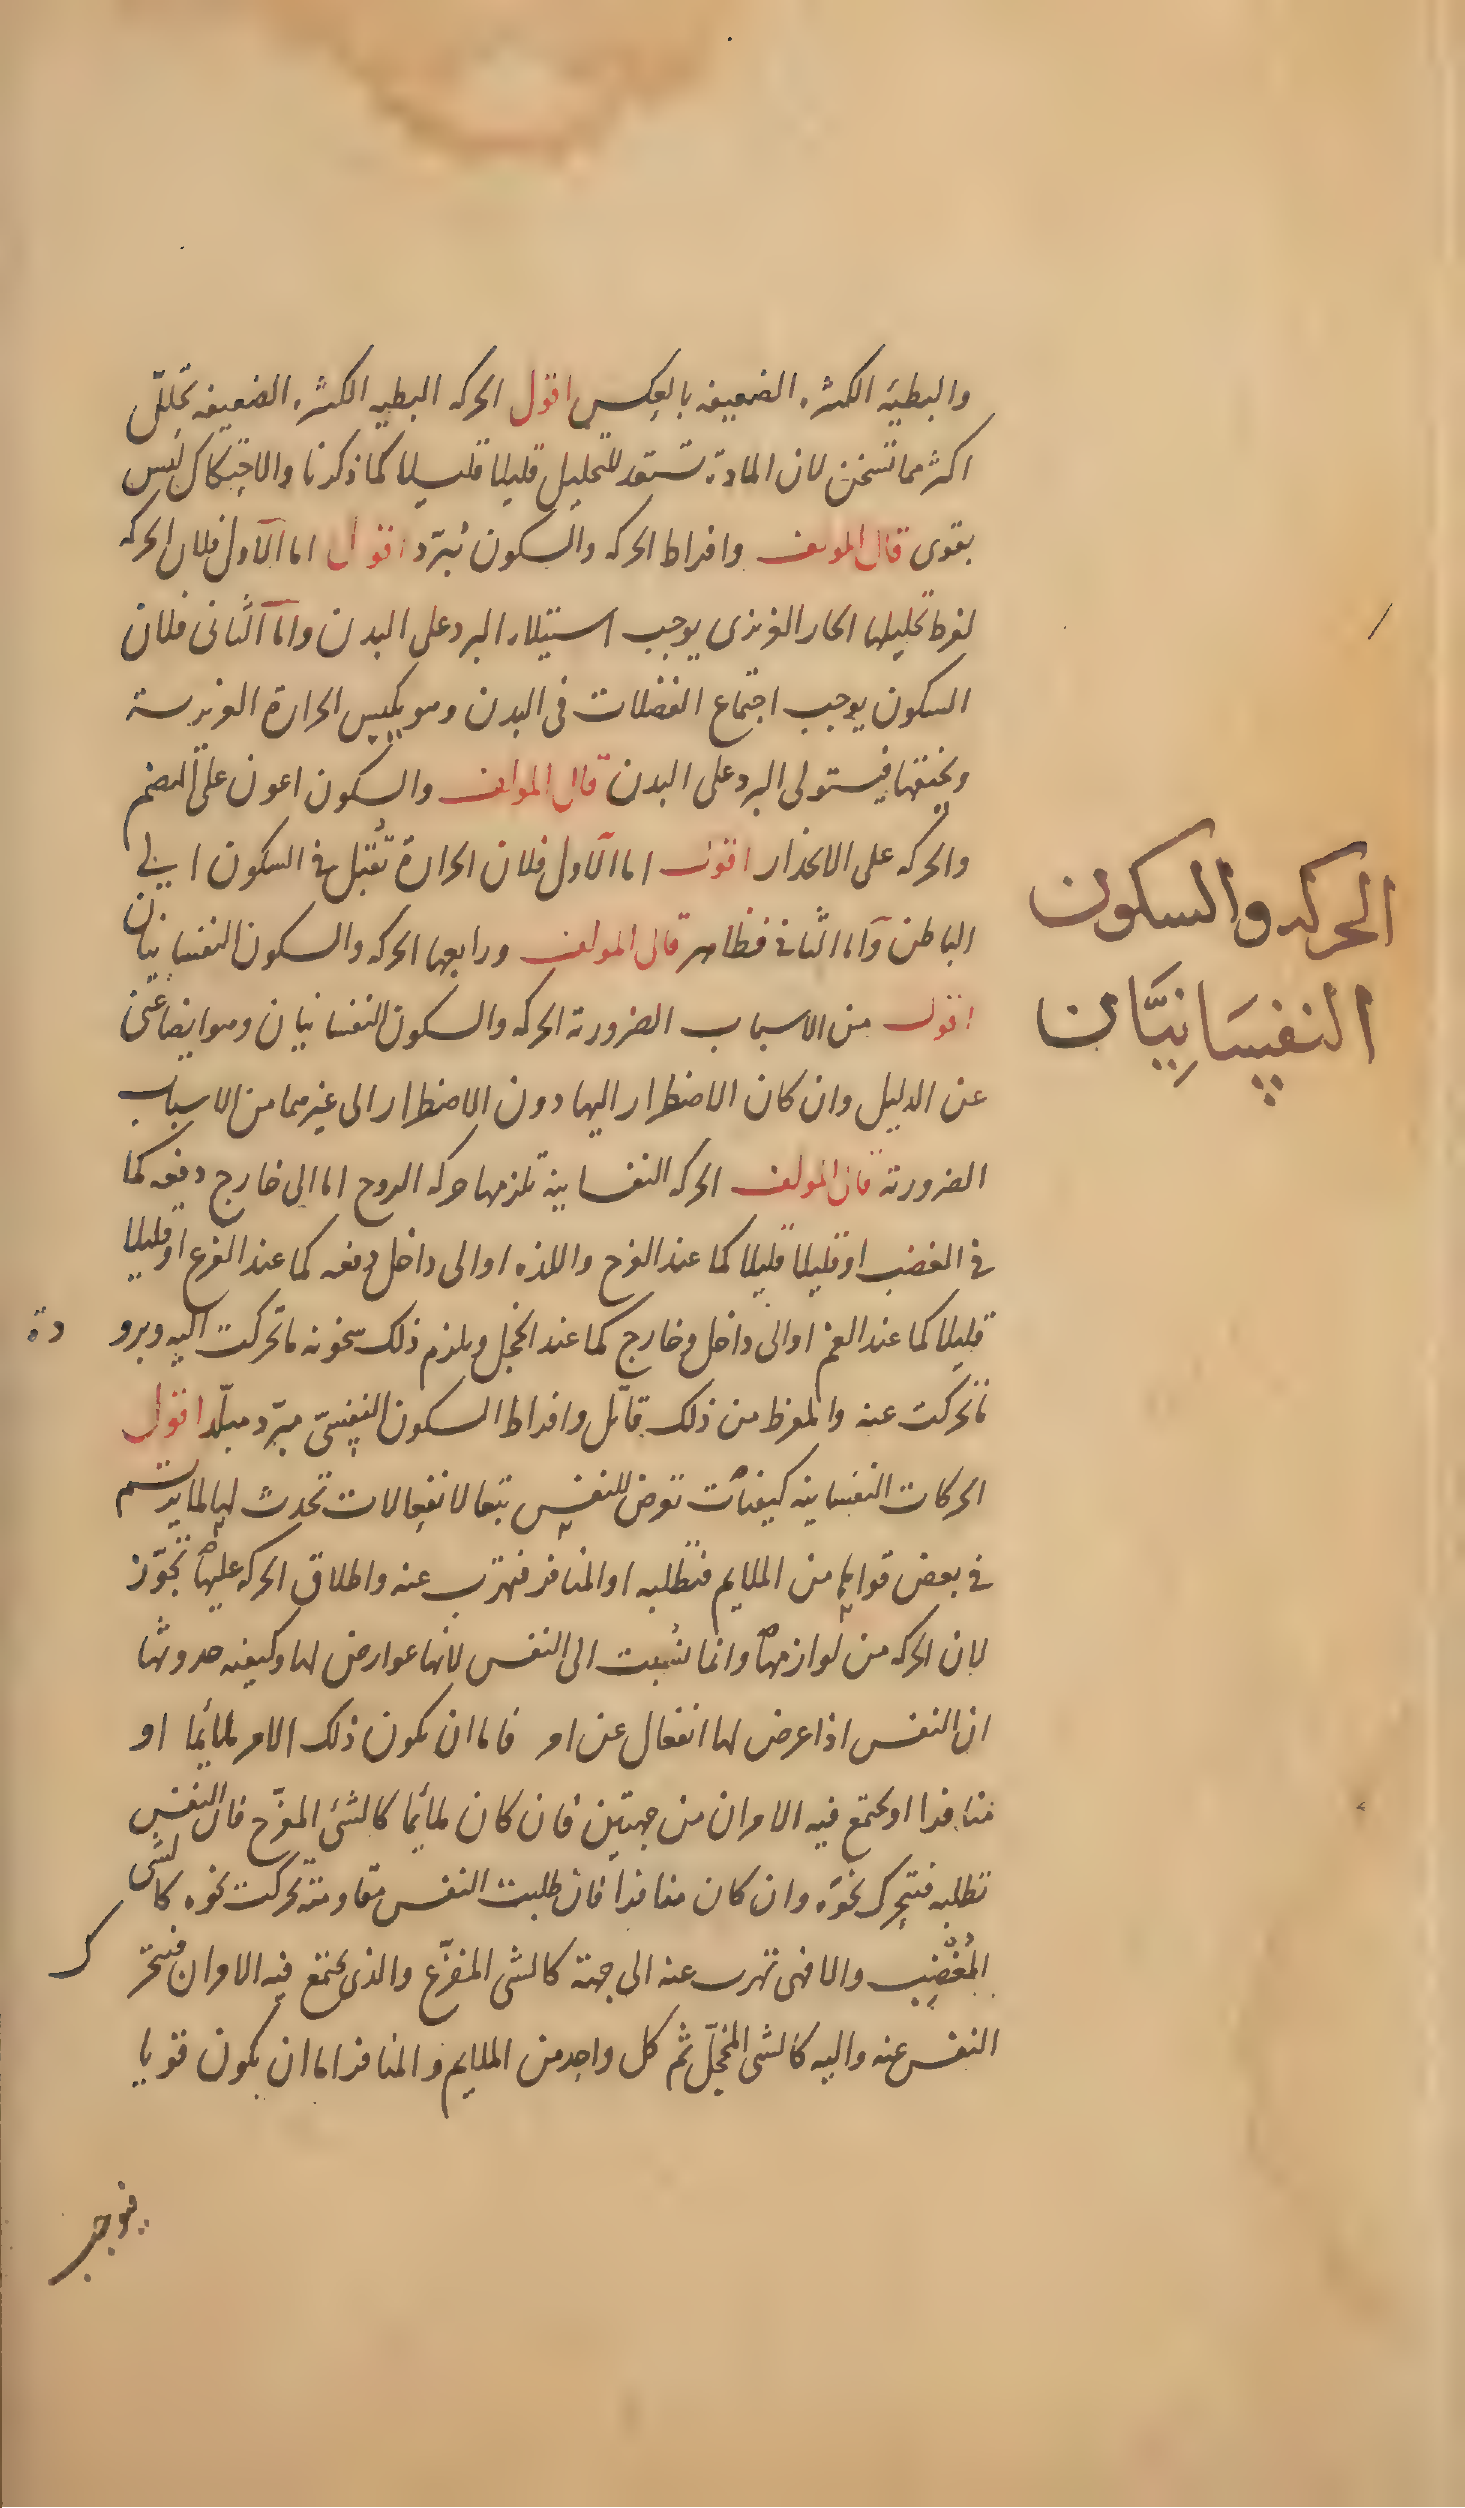 والبطيه الكثيره الضعيفه بالعكس اقول الحركه البطيه الكثيره الضعيفه تحلل
اكثر مما تسخن لان المادة تستعد للتحليل قليلا قليلا كما ذكرنا والاحتكاك ليس
بقوى قال المولف وافراط الحركه والسكون يبرد اقول اما الاول فلان الحركه
لفرط تحليلها الحار الغريزى يوجب استيلاء البرد على البدن واما الثانى فلان
السكون يوجب اجتماع الفضلات فى البدن وهو يكبس الحرارة الغريزية
ويخنقها فيستولى البرد على البدن قال المولف والسكون اعون على الهضم
والحركه على الانحدار اقول اما الاول فلان الحرارة تقبل فى السكون الى
الباطن واما الثانى فظاهر قال المولف ورابعها الحركه والسكون النفسانيان
اقول من الاسباب الضرورية الحركه والسكون النفسانيان وهو ايضا غنى
عن الدليل وان كان الاضطرار اليها دون الاضطرار الى غيرهما من الاسباب
الضرورية قال المولف الحركه النفسانية تلزمها حركه الروح اما الى خارج دفعه كما
فى الغضب او قليلا قليلا كما عند الفرح واللذه او الى داخل دفعه كما عند الفزع او قليلا
قليلا كما عند الغم او الى داخل وخارج كما عند الخجل ويلزم ذلك سخونه ما تحركت اليه وبرودة
ما تحركت عنه والمفرط من ذلك قاتل وافراط السكون النفسى مبرد مبلد اقول
الحركات النفسانيه كيفيات تعرض للنفس تبعا لانفعالات تحدث لها لما يرتسم
فى بعض قواها من الملايم فتطلبه او المنافر فتهرب عنه واطلاق الحركه عليها تجوز
لان الحركه من لوازمها وانما نسبت الى النفس لانها عوارض لها وكيفيه حدوثها
ان النفس اذا عرض لها انفعال عن امر فاما ان يكون ذلك الامر ملائما او
منافرا او يجتمع فيه الامران من جهتين فان كان ملائما كالشئ المفرح فان النفس
تطلبه فتتحرك نحوه وان كان منافرا فان طلبت النفس مقاومته تحركت نحوه كالشى
المغضب والا فهى تهرب عنه الى جهة كالشى المفزع والذى يجتمع فيه الامران فتتحرك
النفس عنه واليه كالشى المخجل ثم كل واحد من الملايم والمنافر اما ان يكون قويا
فيوجب
الحركه والسكون
النفسانيان